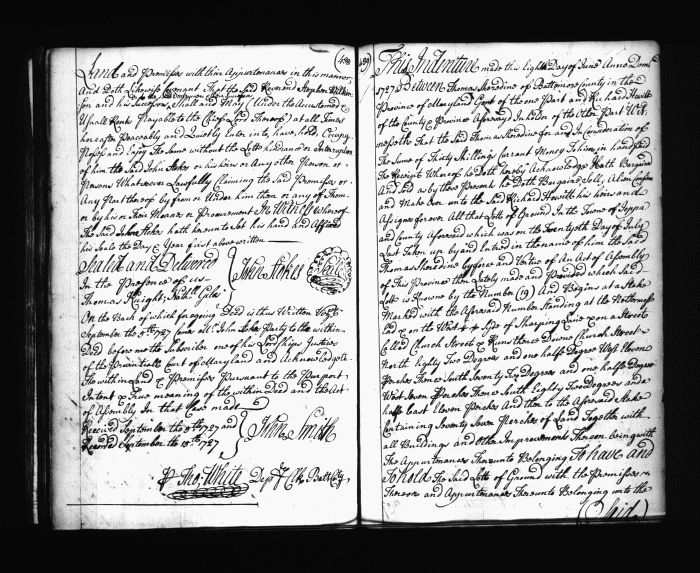 (498)
Land and Premises with their Appurtenances in this manner
And Doth Likewise Covenant That the said Reverend Stephen Wilkin-
son and his Successors Shall and May (Under the Accustomed &
Usuall Rents Payable to the Chief Lord Thereof) at all Times
hereafter Peaceably and Quietly Enter into, have, hold, Occupy
Possess and Enjoy the Same without the Lett hindrance or Interruption
of him the said John Stokes or his heirs or Any Other Person or
Persons Whatsoever Lawfully Claiming the said Premises or
Any Part thereof by from or Under him them or any of Them
or by his or Their Means or Procurement In Witness Whereof
The Said John Stokes hath hereunto Set his hand and Affixed
his Seale the Day & Year first above written
Sealed and Delivered
In the Presence of us
Thomas Knight, Nathll Giles
John Stokes Seal
On the Back of which foregoing Deed is thus Written Vizt
September the 5th 1727 Came John Stokes Party to the within
Deed before me the Subscriber one of his Lordships Justices
of the Provinciall Court of Maryland and Acknowledged
the within Land & Premises Pursuant to the Purport
Intent & True meaning of the within Deed and the Act
of Assembly In that Case made
Received September the 5th 1727 and
Records September the 15th 1727
John Smith
Tho: White Dep Clk Balt Cty
499)
This Indenture made this Eighth Day of June Anno Dom
1727 Between Thomas Sheredine of Baltemore County in the
Province of Maryland Gent of the one Part and Richard Hewitt
of the County & Province Aforesaid In holder of the Other Part Wit-
nesseth That the said Thomas Sheredine for and In Consideration of
The Sume of Thirty Shillings Currant Money To him in hand Paid
the Receipt Whereof he Doth hereby Acknowledge Hath Bargained
And Sold as by these Presents he Doth Bargaine Sell, Alien Confirm
and Make Over unto the said Richard Hewitt his heirs and
Assigns forever All that Lott of Ground In the Town of Joppa
and County Aforesaid which was on the Twentyeth Day of July
Last Taken up by and Entred in the name of him the said
Thomas Sheredine by force and Vertue of An Act of Assembly
of This Province then Lately made and Provided which Said
Lott is Knowne by the Number (19) And Begins at a Stake
Marked with the Aforesaid Number Standing at the Northernmost
End & on the West Side of Sharping Lane upon a Street
Called Church Street & Runs thence Downe Church Street
North Eighty Two Degrees and one halfe Degree West Eleven
Perches Thence South Seventy Two Degrees and one halfe Degree
West Seven Perches Thence South Eighty Two Degrees and a
halfe East Eleven Perches And then to the Aforesaid Stake
Containing Seventy Seven Perches of Land Together with
all Buildings and Other Improvements Thereon being with
The Appurtenances Thereunto Belonging To have and
To hold The Said Lott of Ground with the Premisses
Thereon and Appurtenances Thereunto Belonging unto the
(Said)